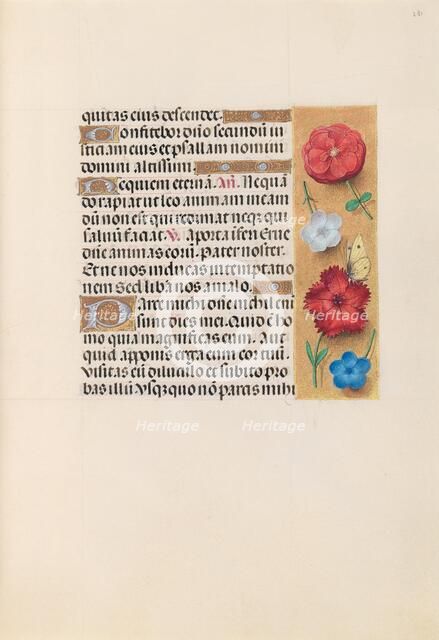 quitas eius descendet.
Confitebor dño secundũ iu
sticiam eius et psallam nomini
domini altissimi
Requiem eternã. Añ. Nequã
do rapiat ut leo animam meam
dũ non est qui redimat neq̃ qui
saluũ faciat. V. A porta iferi Erue
dñe animas eorũ. Pater noster.
Et ne nos inducas in temptatio
nem Sed liba nos a malo.
Parce michi dñe nichil eni
sunt dies mei. Quid ẽ ho
mo quia magnificas eum. Aut
quid apponis erga eum cor tuũ.
Visitas eũ diluculo et subito pro
bas illũ Usq̃quo nõ parcis mihi
Heritage
Heritage
Heritage
Heritage